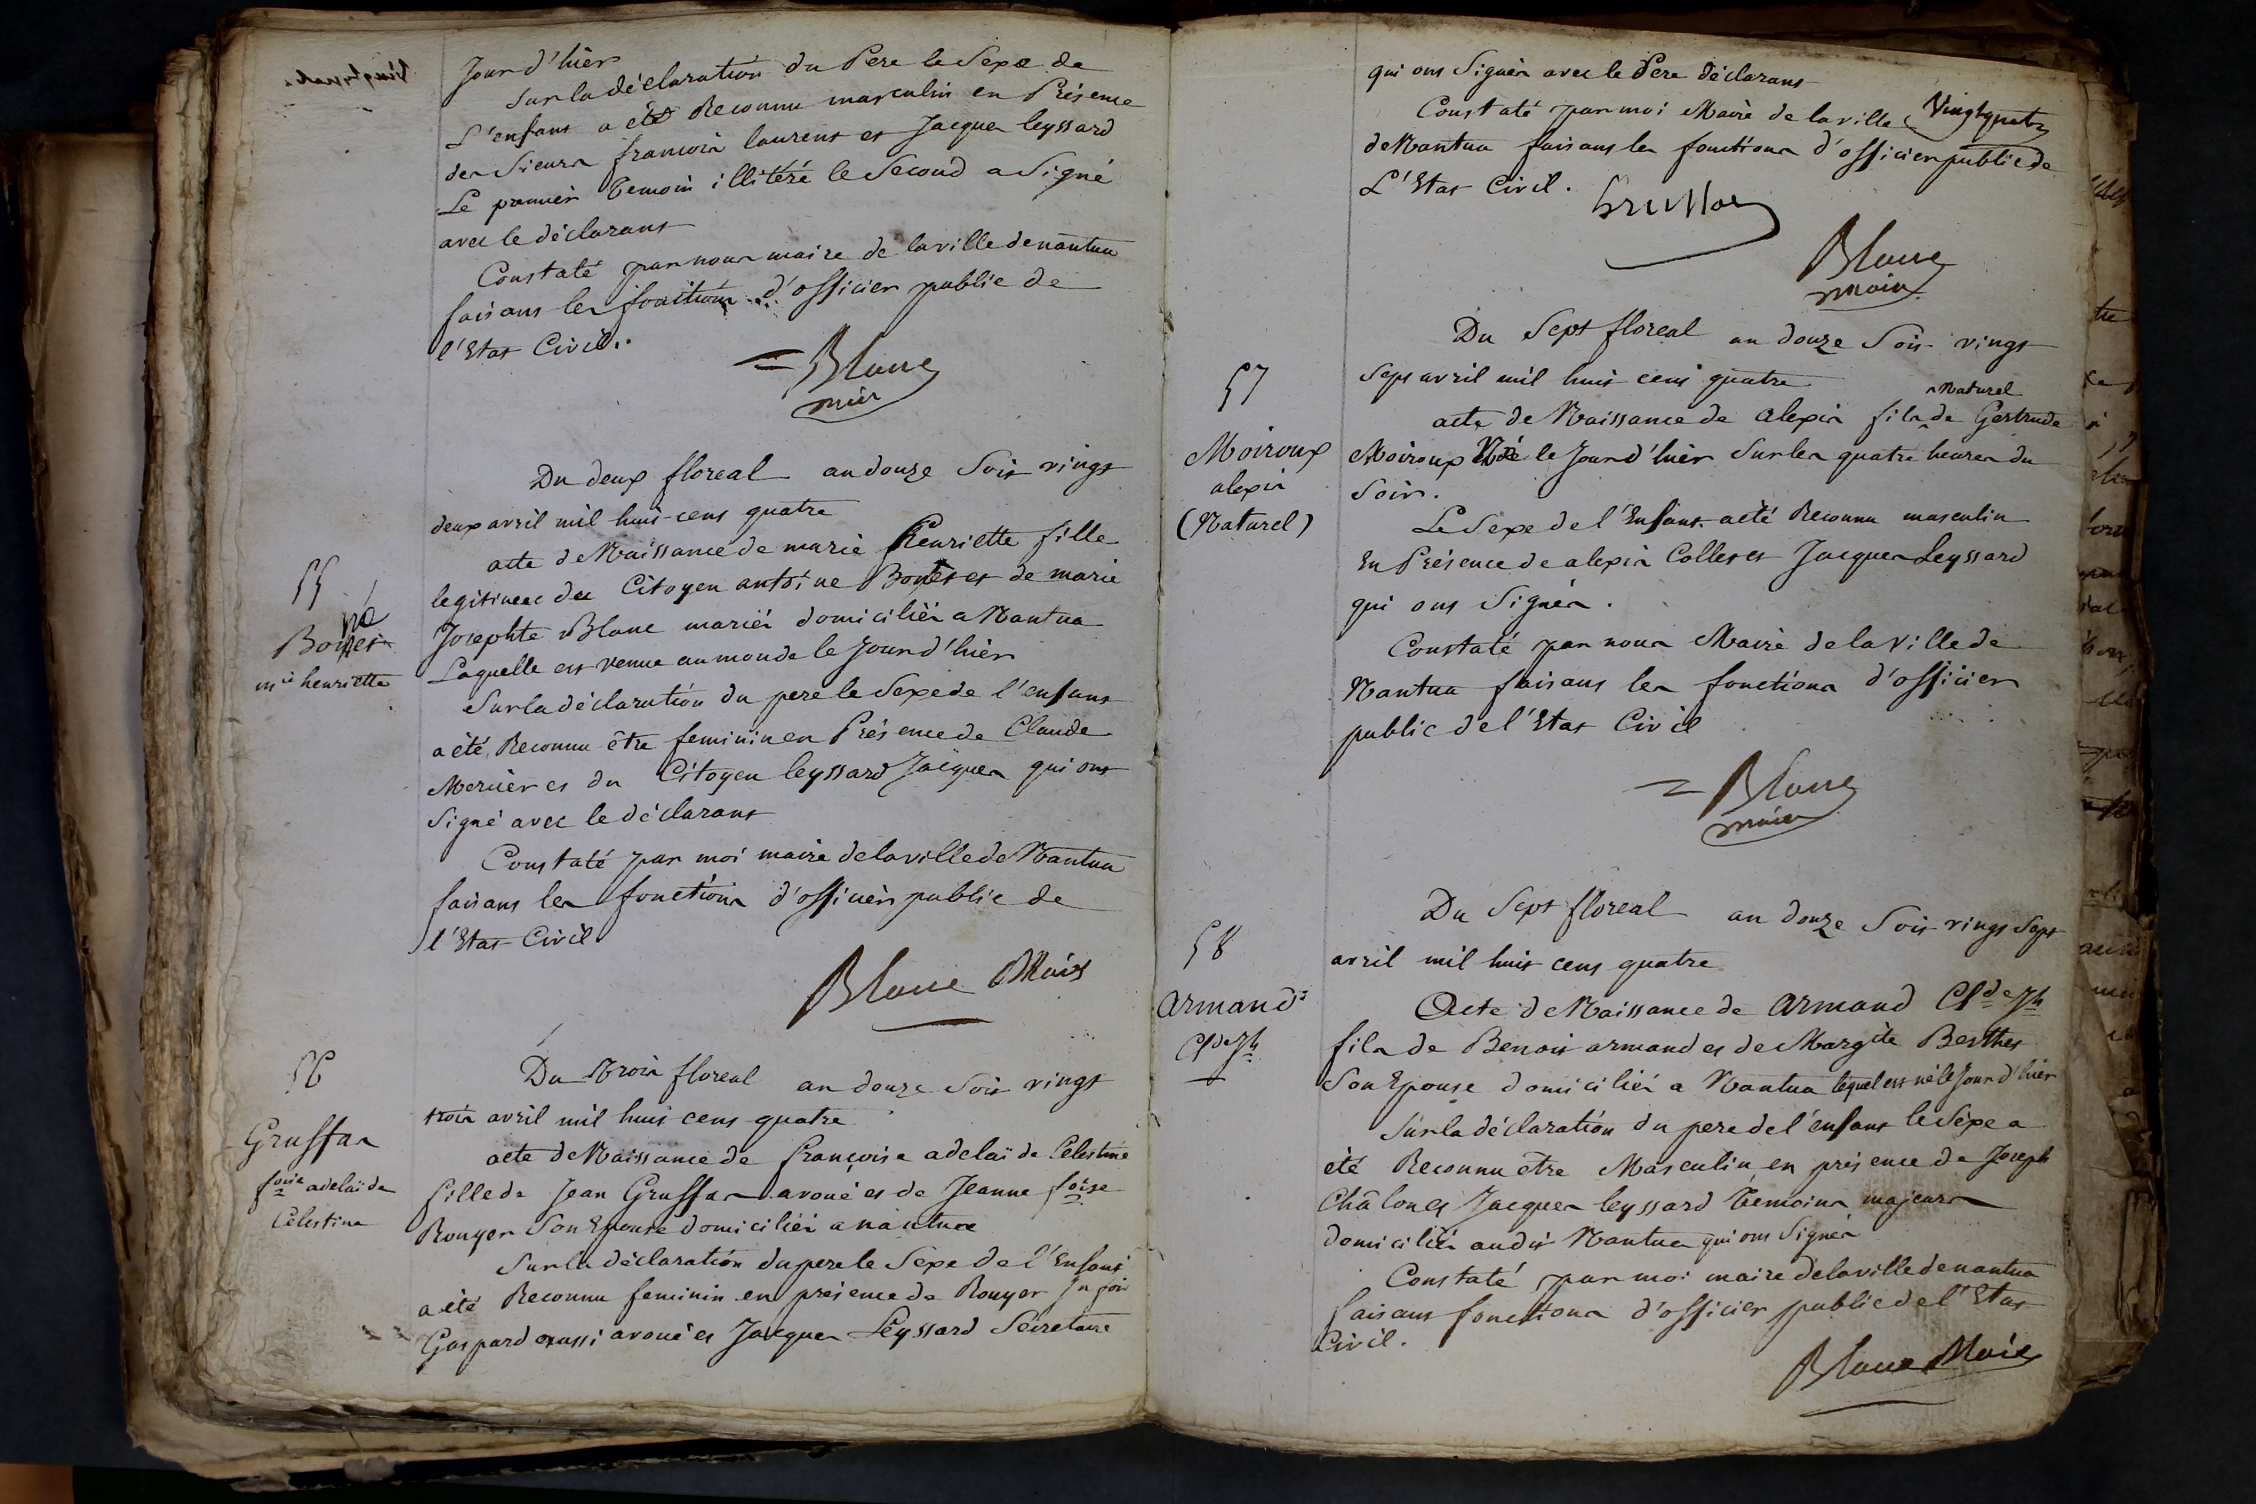 Jour d'hier
Sur la déclaration du Pere le Sexe de
L'enfant a été Reconnu masculin en Présence
des Sieurs francois laurent et Jacques leyssard
Le premier temoin illitéré le Second a Signé
avec le déclarant
Constaté par nous maire de la ville de nantua
faisant les fonctions d'officier public de
l'Etat Civil.
Blanc
maire
55
né
Bonet
m.ie henriette
Du deux floreal an douze Soit vingt
deux avril mil huit cent quatre
acte de Naissance de marie Henriette fille
legitime du Citoyen antoine Bonet et de marie
Josephte Blanc mariés domiciliés a Nantua
Laquelle est venue au monde le Jour d'hier
Sur la déclaration du pere le Sexe de l'enfant
a été Reconnu être feminin en Présence de Claude
Mercier et du Citoyen leyssard Jacques qui ont
Signé avec le déclarant
Constaté par moi maire de la ville de Nantua
faisant les fonctions d'officier public de
l'Etat Civil
Blanc Maire
56
Grussas
foise adelaïde
Celestine
Du trois floreal an douze Soit vingt
trois avril mil huit cent quatre
acte de Naissance de françoise adelaïde Celestine
fille de Jean Grussas avoué et de Jeanne foise
Rouyer Son Epouse domiciliés a nantua
Sur la déclaration du pere le Sexe de l'Enfant
a été Reconnu feminin en présence de Rouyer
Gaspard aussi avoué et Jacques Leyssard Secretaire
qui ont Signés avec le Pere déclarant
Vingt quatre
Constaté par moi Maire de la ville
de Nantua faisant les fonctions d'officier public de
L'Etat Civil.
Grussas
Blanc
maire
57
Moiroux
alexis
(Naturel)
Du Sept floreal an douze Soit vingt
Sept avril mil huit cent quatre
Naturel
acte de Naissance de alexis fils de Gertrude
Moiroux Né le Jour d'hier Sur les quatre heures du
Soir.
Le Sexe de l'Enfant a été Reconnu masculin
En Présence de alexis Collet et Jacques Leyssard
qui ont Signés.
Constaté par nous Maire de la Ville de
Nantua faisant les fonctions d'officier
public de l'Etat Civil
Blanc
maire
58
Armand
Cl.de Jh
Du Sept floreal an douze Soit vingt Sept
avril mil huit cent quatre
Acte de Naissance de Armand Cl.de Jh
fils de Benoit armand et de Margte Berthet
Son Epouse domiciliés a Nantua lequel est né le Jour d'hier
Sur la déclaration du pere de l'enfant le Sexe a
été Reconnu être Masculin en présence de Joseph
Châlon et Jacques leyssard temoins majeurs
domiciliés audit Nantua qui ont Signés
Constaté par moi maire de la ville de nantua
faisant fonctions d'officier public de l'Etat
Civil.
Blanc Maire